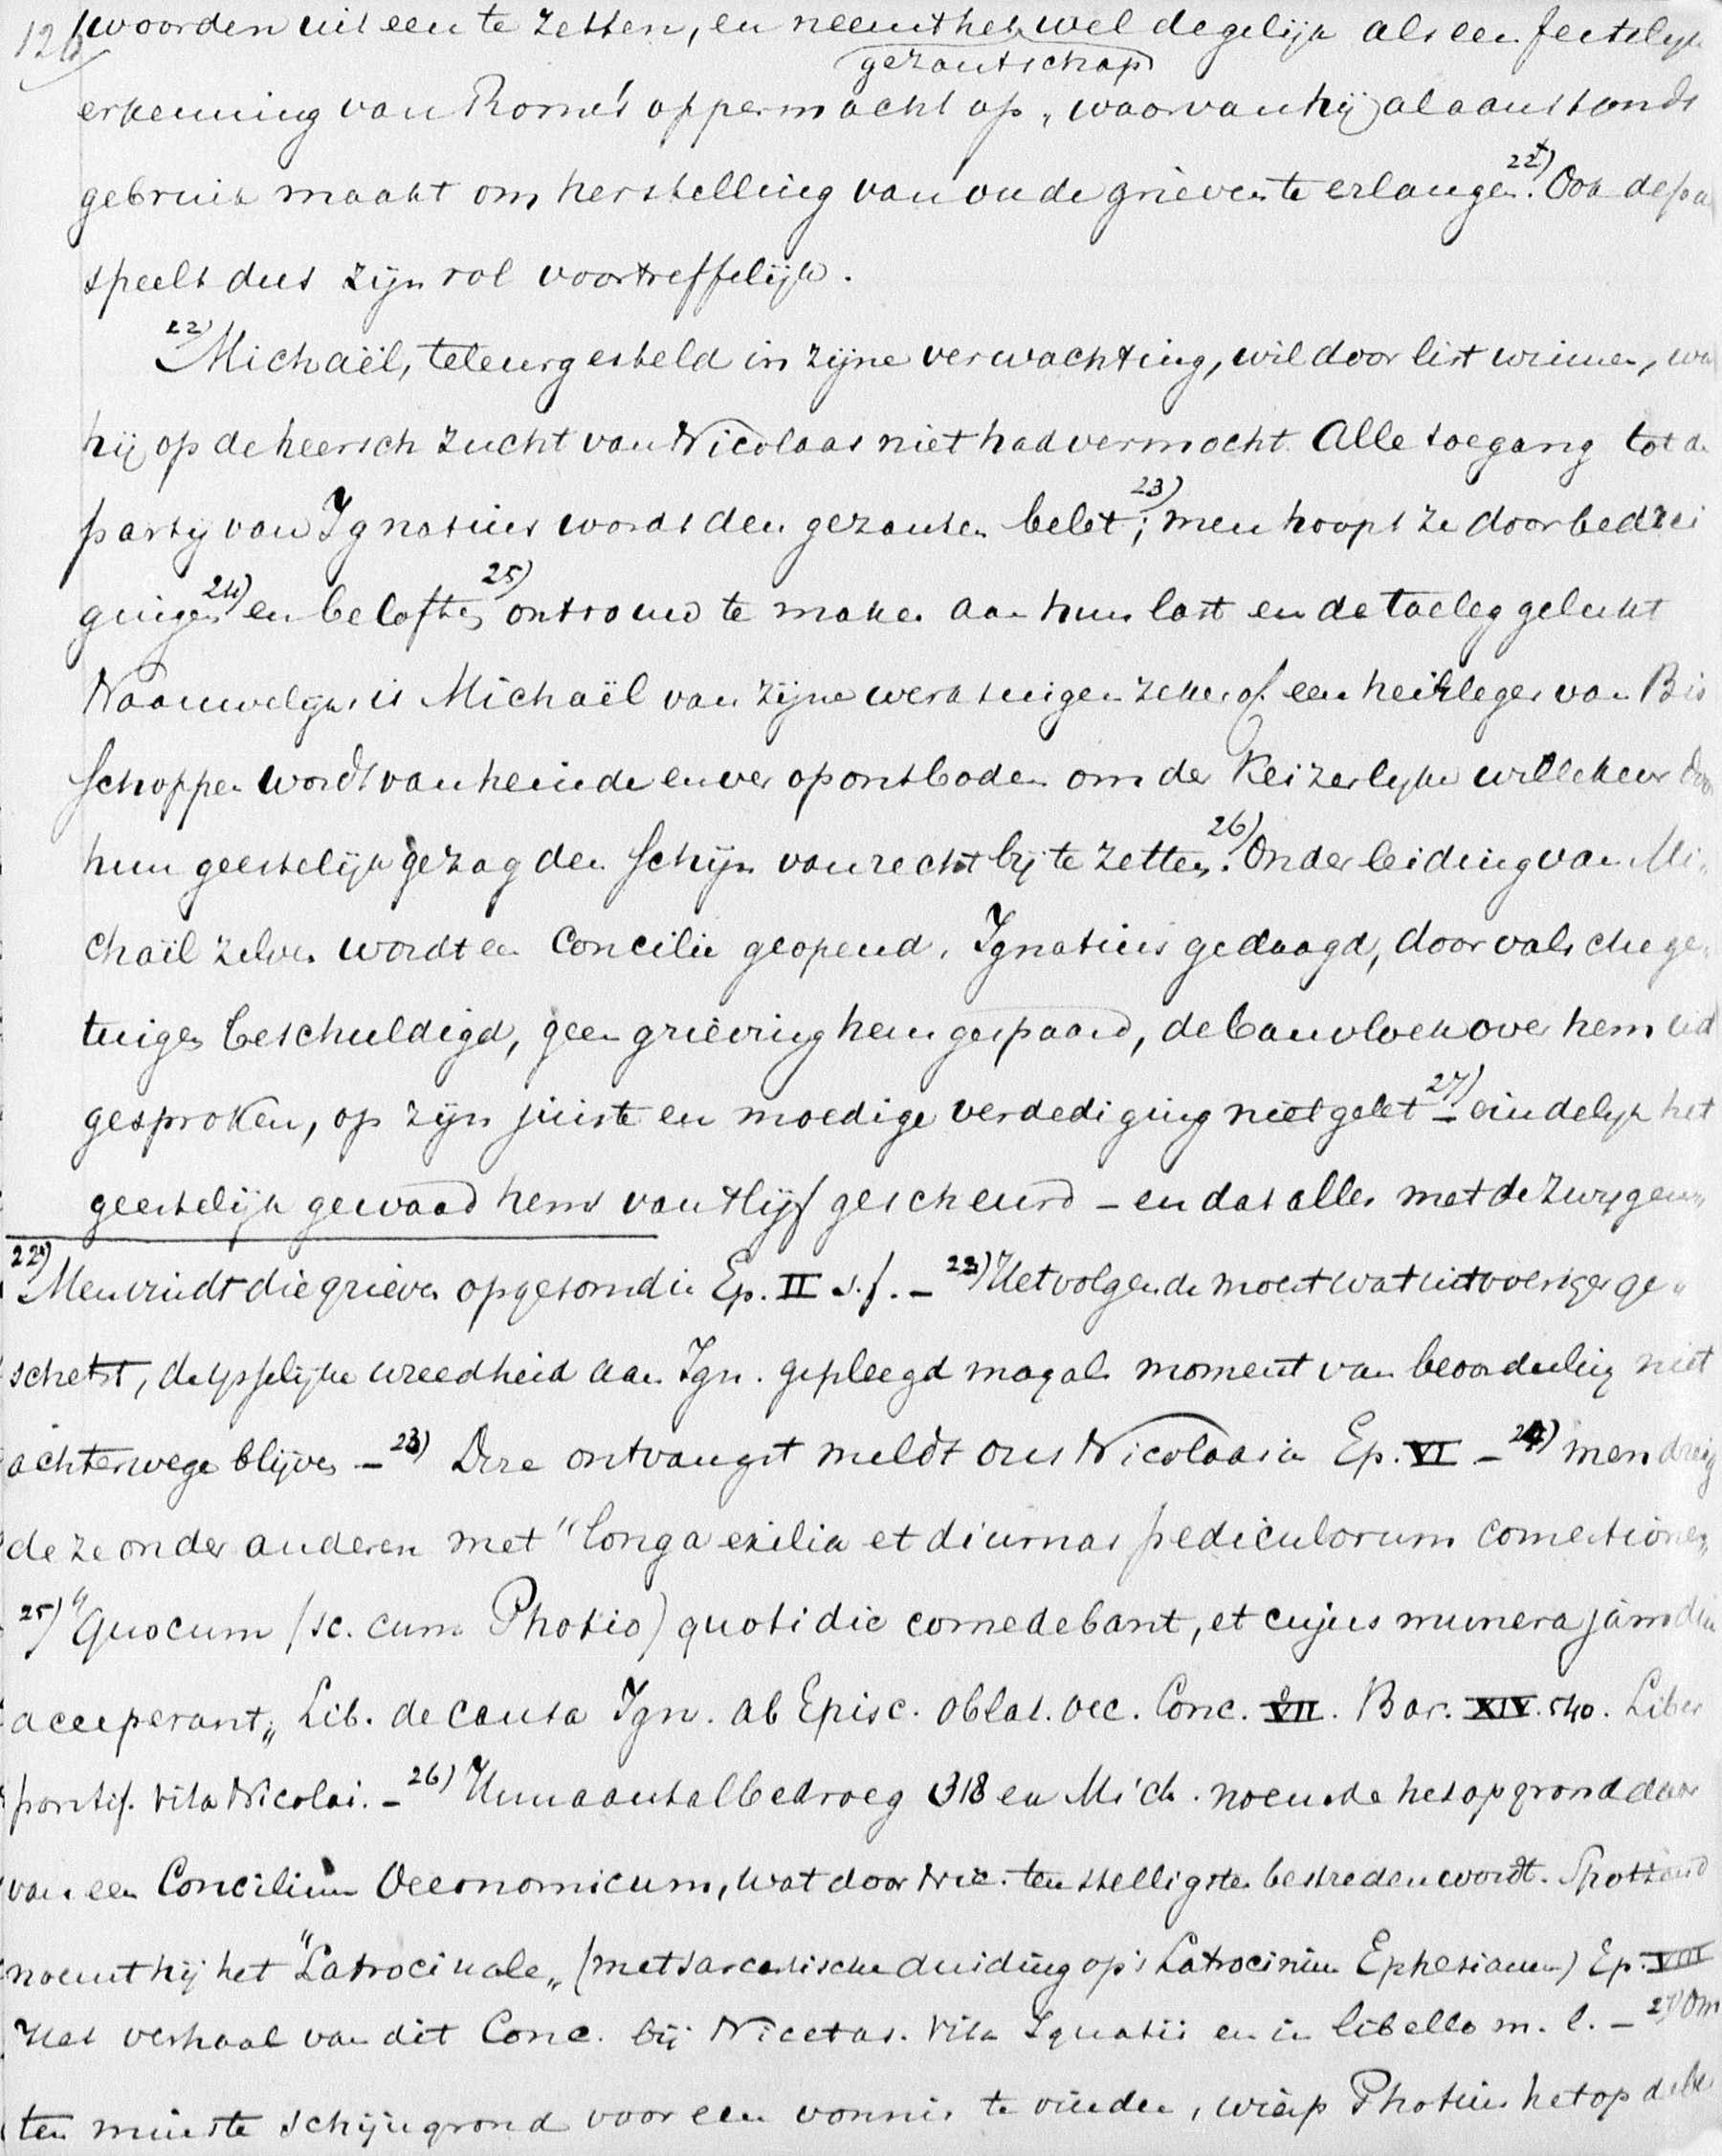 126
woorden uit een te zetten, en neemt het wel degelijk als een feitelijke
gezantschap
erkenning van Rome's oppermacht op, waarvan hij al aanstonds
gebruik maakt om herstelling van oude grieven te erlangen. 22*) Ook de pa
speelt dus zijn rol voortreffelijk.
22) Michaël, teleurgesteld in zijne verwachting, wil door list winnen, wa
hij op de heerschzucht van Nicolaas niet had vermocht. Alle toegang tot de
partij van Ignatius wordt den gezanten belet; 23) men hoopt ze door bedrei
gingen 24) en beloften 25) ontrouw te maken aan hun last en de toeleg gelukt
Naauwelijks is Michaël van zijne werktuigen zeker of een heirleger van Bis
schoppen wordt van heinde en ver opontboden om der Keizerlijke willekeur door
hun geestelijk gezag den schijn van recht bij te zetten. 26) Onder leiding van Mi-
chaël zelven wordt een Concilie geopend, Ignatius gedaagd, door valsche ge-
tuigen beschuldigd, geen grieving hem gespaard, de banvloek over hem uit
gesproken, op zijn juiste en moedige verdediging niet gelet 27) – eindelijk het
geestelijk gewaad hem van 't lijf gescheurd – en dat alles met de zwijgen-
22*) Men vindt die grieven opgesomd in Ep. II s.f. – 22) Het volgende moet wat uitvoeriger ge-
schetst, de ijsselijke wreedheid aan Ign. gepleegd mag als moment van beoordeeling niet
achterwege blijven – 23) Deze ontvangst meldt ons Nicolaas in Ep. VI – 24) men dreig
de ze onder anderen met "longa exilia et diurnas pediculorum comestiones„
25) "Quocum (sc. cum Photio) quotidie comedebant, et cujus munera jam diu
acceperant„ Lib. de causa Ign. ab Episc. oblat. oec. Conc. VII. Bar. XIV. 540. Liber
pontif. vita Nicolai. – 26) Hun aantal bedroeg 318 en Mich. noemde het op grond daar
van een Concilium Oeconomicum, wat door Nic. ten stelligsten bestreden wordt. Spottend
noemt hij het "Latrocinale„ (met sarcastische duiding op 't Latrocinium Ephesianum) Ep. VIII
Het verhaal van dit Conc. bij Nicetas. Vita Ignatii en in libello m. l. – 27) Om
ten minste schijngrond voor een vonnis te vinden, wierp Photius het op de be